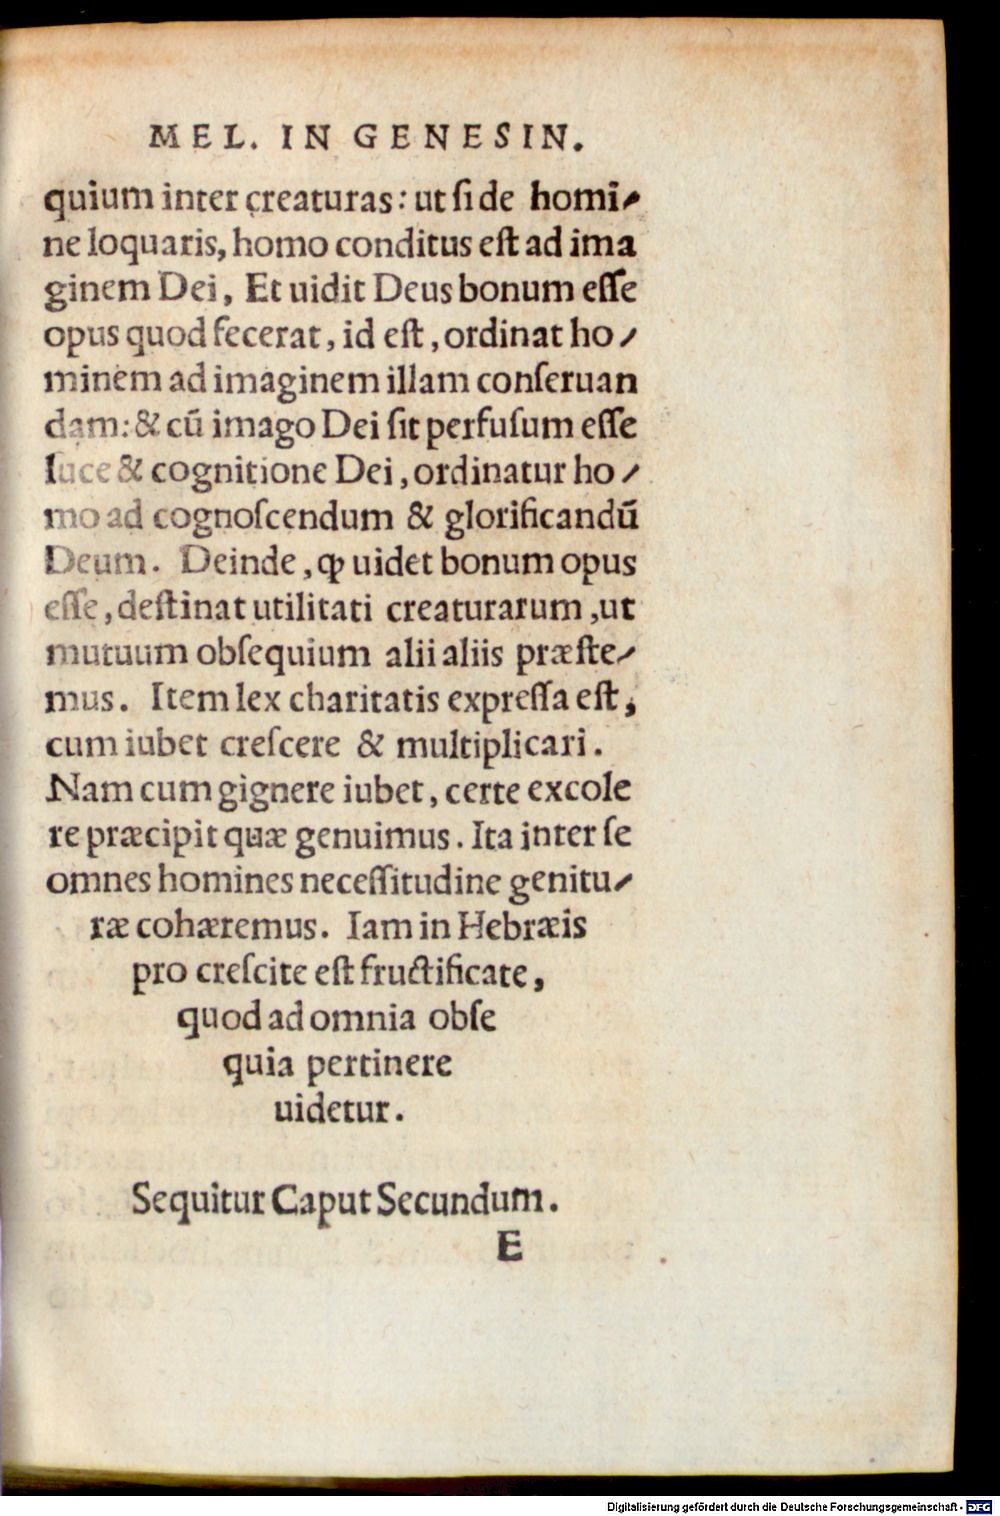 MEL. IN GENESIN.
quium inter creaturas: ut ſi de homi-
ne loquaris, homo conditus eſt ad ima
ginem Dei, Et uidit Deus bonum eſſe
opus quod fecerat, id eſt, ordinat ho-
minem ad imaginem illam conſeruan
dam: & cū imago Dei ſit perfuſum eſſe
luce & cognitione Dei, ordinatur ho-
mo ad cognoſcendum & glorificandū
Deum. Deinde, ꝙ uidet bonum opus
eſſe, deſtinat utilitati creaturarum, ut
mutuum obſequium alii aliis præſte-
mus. Item lex charitatis expreſſa eſt,
cum iubet creſcere & multiplicari.
Nam cum gignere iubet, certe excole
re præcipit quæ genuimus. Ita inter ſe
omnes homines neceſſitudine genitu-
ræ cohæremus. Iam in Hebræis
pro creſcite eſt fructificate,
quod ad omnia obſe
quia pertinere
uidetur.
Sequitur Caput Secundum.
E
Digitalisierung gefördert durch die Deutsche Forschungsgemeinschaft - DFG